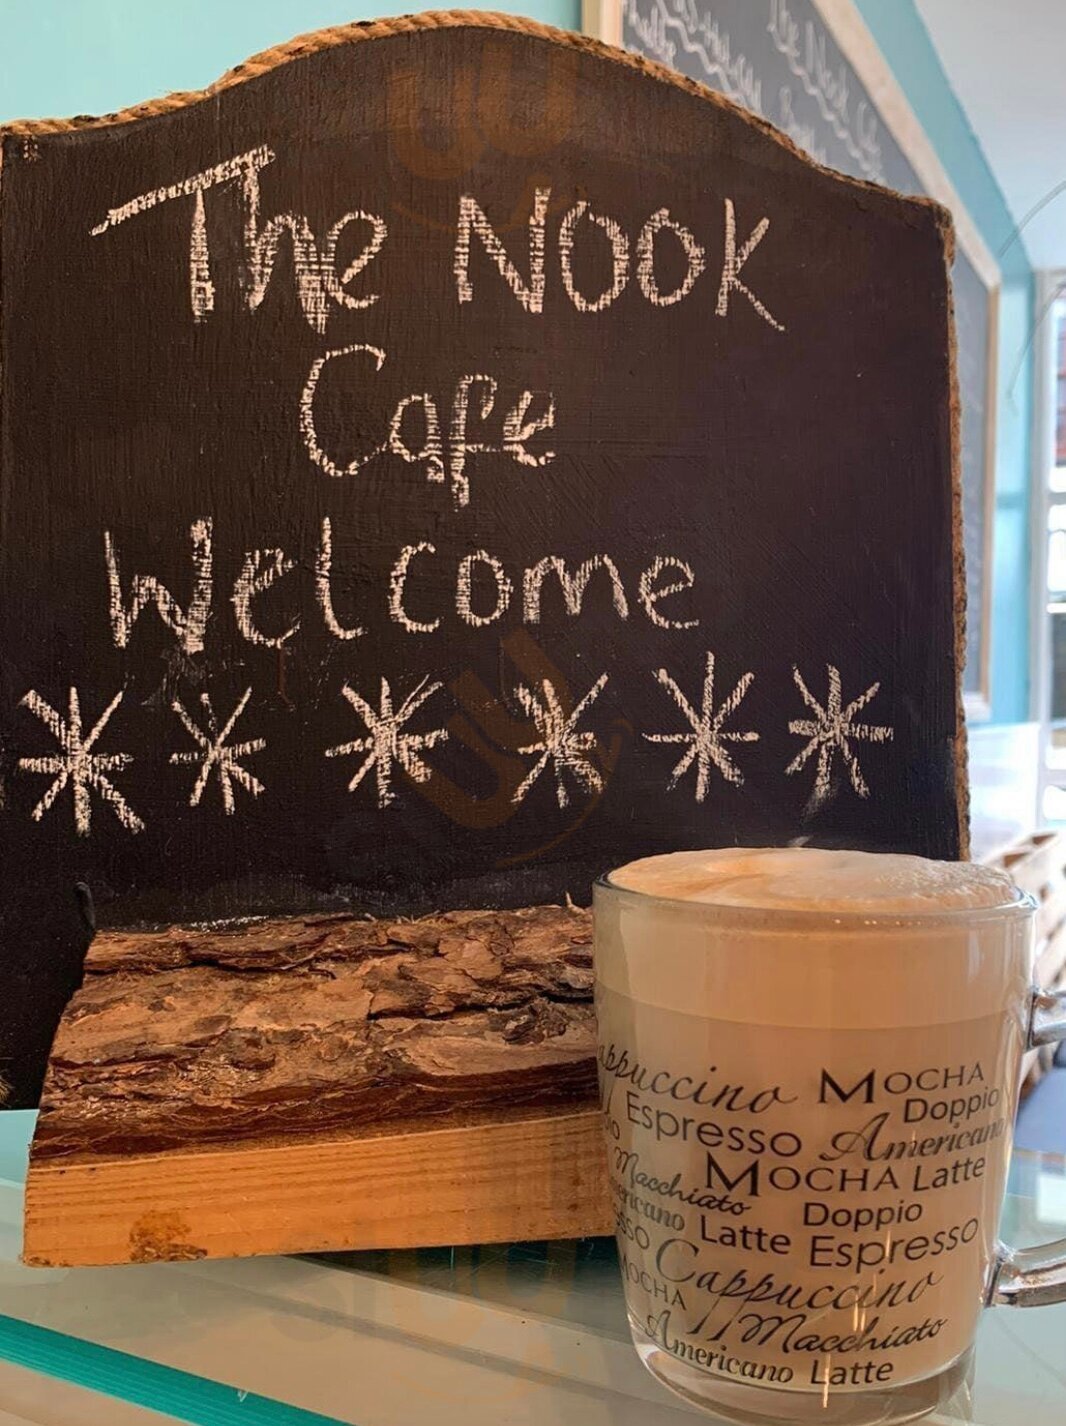 The Nook
Cafe
Welcome
Cappuccino MOCHA
Espresso Doppio
Americano
Macchiato MOCHA Latte
Americano Latte Doppio
Espresso
Cappuccino
MOCHA
Macchiato
Americano Latte